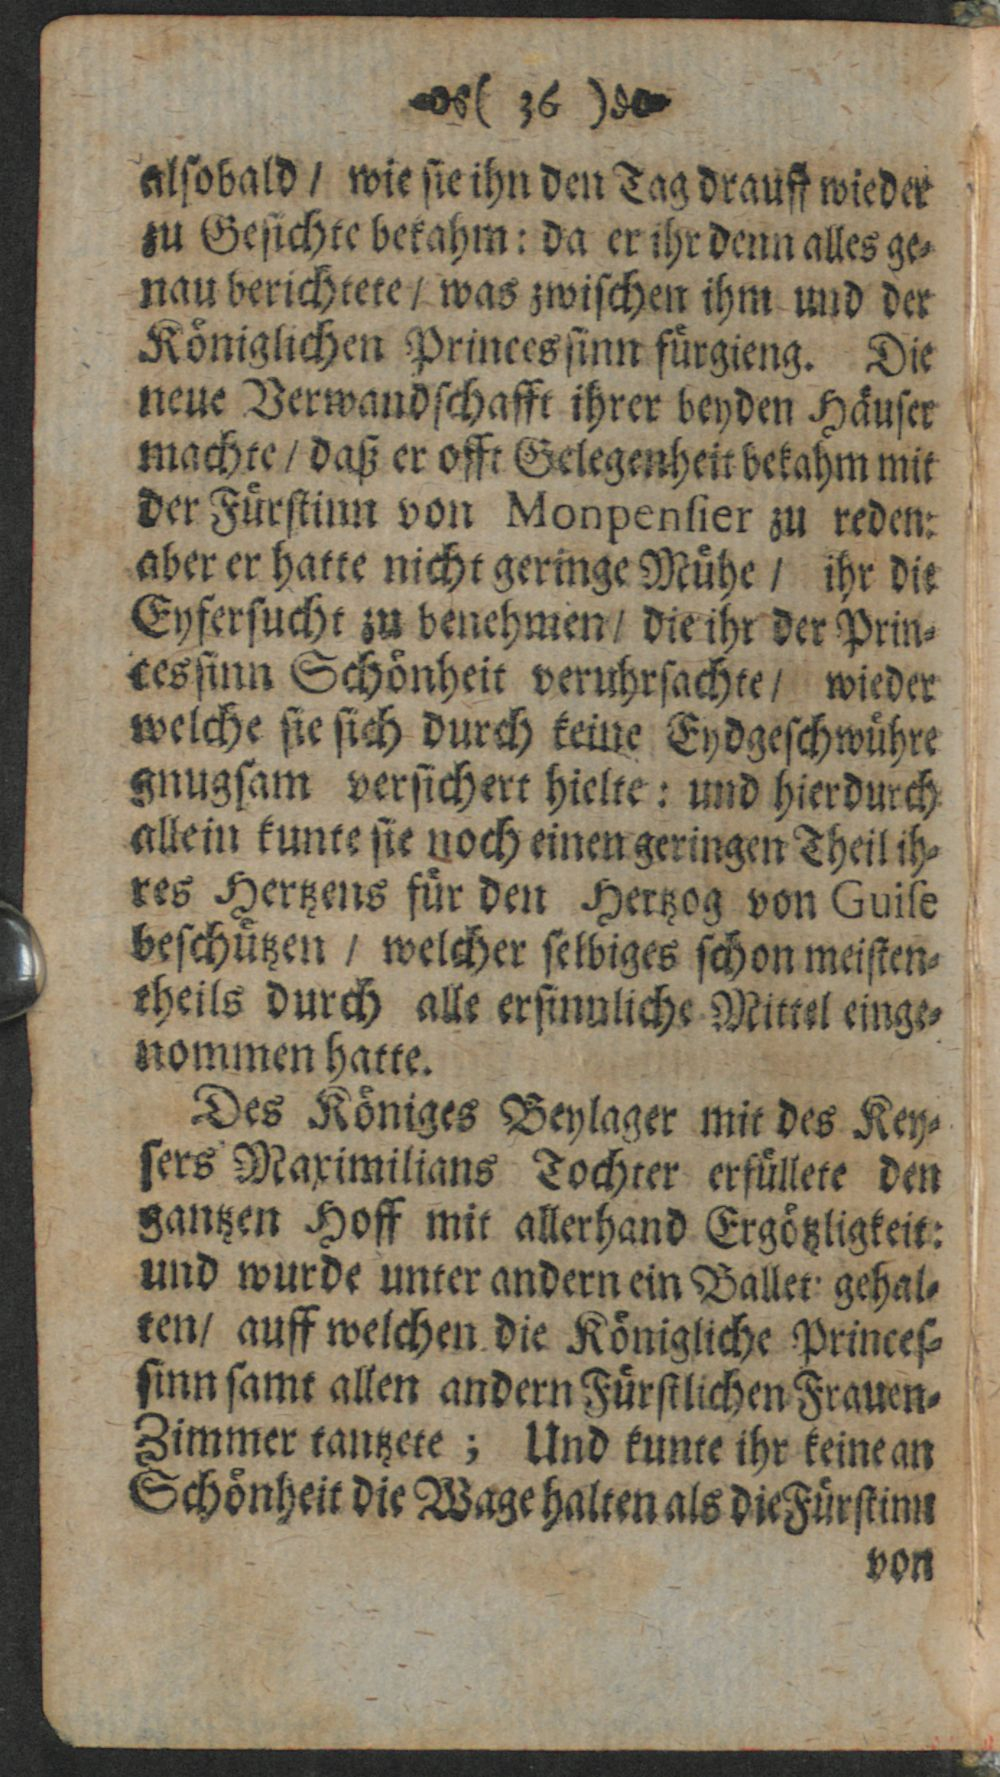 ( 36 )
alsobald / wie sie ihn den Tag drauff wieder
zu Gesichte bekahm: da er ihr denn alles ge-
nau berichtete / was zwischen ihm und der
Königlichen Princessinn fürgieng. Die
neue Verwandschafft ihrer beyden Häuser
machte / daß er offt Gelegenheit bekahm mit
der Fürstinn von Monpensier zu reden:
aber er hatte nicht geringe Mühe / ihr die
Eyfersucht zu benehmen / die ihr der Prin-
cessinn Schönheit veruhrsachte / wieder
welche sie sich durch keine Eydgeschwühre
gnugsam versichert hielte: und hierdurch
allein kunte sie noch einen geringen Theil ih-
res Hertzens für den Hertzog von Guise
beschützen / welcher selbiges schon meisten-
theils durch alle ersinnliche Mittel einge-
nommen hatte.
Des Königes Beylager mit des Key-
sers Maximilians Tochter erfüllete den
gantzen Hoff mit allerhand Ergötzligkeit:
und wurde unter andern ein Ballet gehal-
ten / auff welchen die Königliche Princes-
sinn samt allen andern Fürstlichen Frauen-
Zimmer tantzete ; Und kunte ihr keine an
Schönheit die Wage halten als die Fürstinn
von